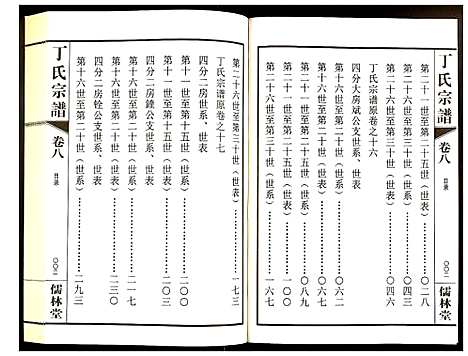 丁氏宗譜
卷八
目录
儒林堂
第二十一世至第二十五世（世系）……〇二八
第二十一世至第二十五世（世表）……〇四三
第二十六世至第三十世（世系）……〇四六
丁氏宗谱原卷之十六
四分大房斌公支世系、世表
第十六世至第二十世（世系）……〇六二
第十六世至第二十世（世表）……〇六七
第二十一世至第二十五世（世系）……〇七六
第二十一世至第二十五世（世表）……
第二十六世至第三十世（世系）……一六七
第二十六世至第三十世（世表）……一七三
丁氏宗谱原卷之十七
四分二房世系、世表
第十一世至第十五世（世系）……二〇〇
第十一世至第十五世（世表）……二〇三
四分二房鐘公支世系、世表
第十六世至第二十世（世系）……二一七
第十六世至第二十世（世表）……二三〇
四分二房铨公支世系、世表
第十六世至第二十世（世系）……二九三
丁氏宗譜
卷八
目录
儒林堂